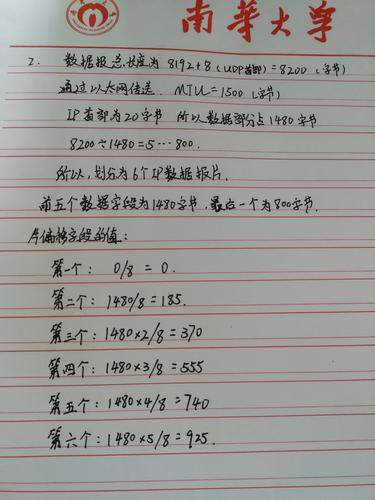 南華大学
2. 数据报总长度为 8192+8 (UDP首部)=8200 (字节)
通过以太网传送. MTU=1500 (字节)
IP首部为20字节 所以数据部分占1480字节
8200÷1480=5···800.
所以,划分为6个IP数据报片.
前五个数据字段为1480字节,最后一个为800字节.
片偏移字段的值:
第一个: 0/8 = 0.
第二个: 1480/8=185.
第三个: 1480×2/8=370
第四个: 1480×3/8=555
第五个: 1480×4/8=740
第六个: 1480×5/8=925.